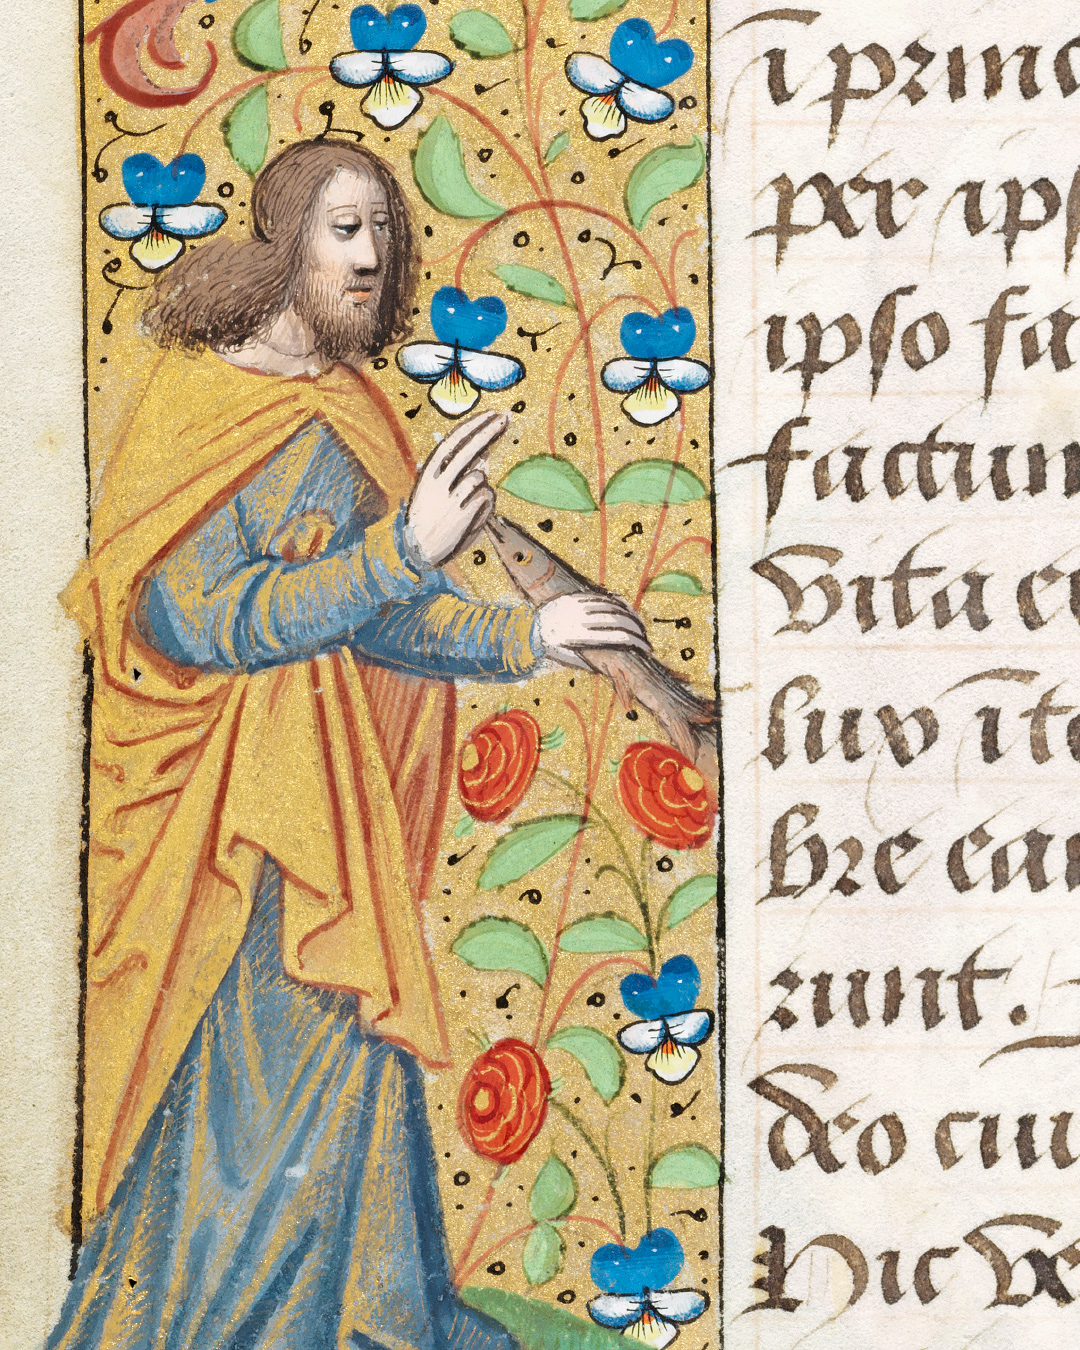 ī princ
per ips
ipso fa
factum
Vita er
lux īte
bre ea
runt.
deo cui
Hic ve